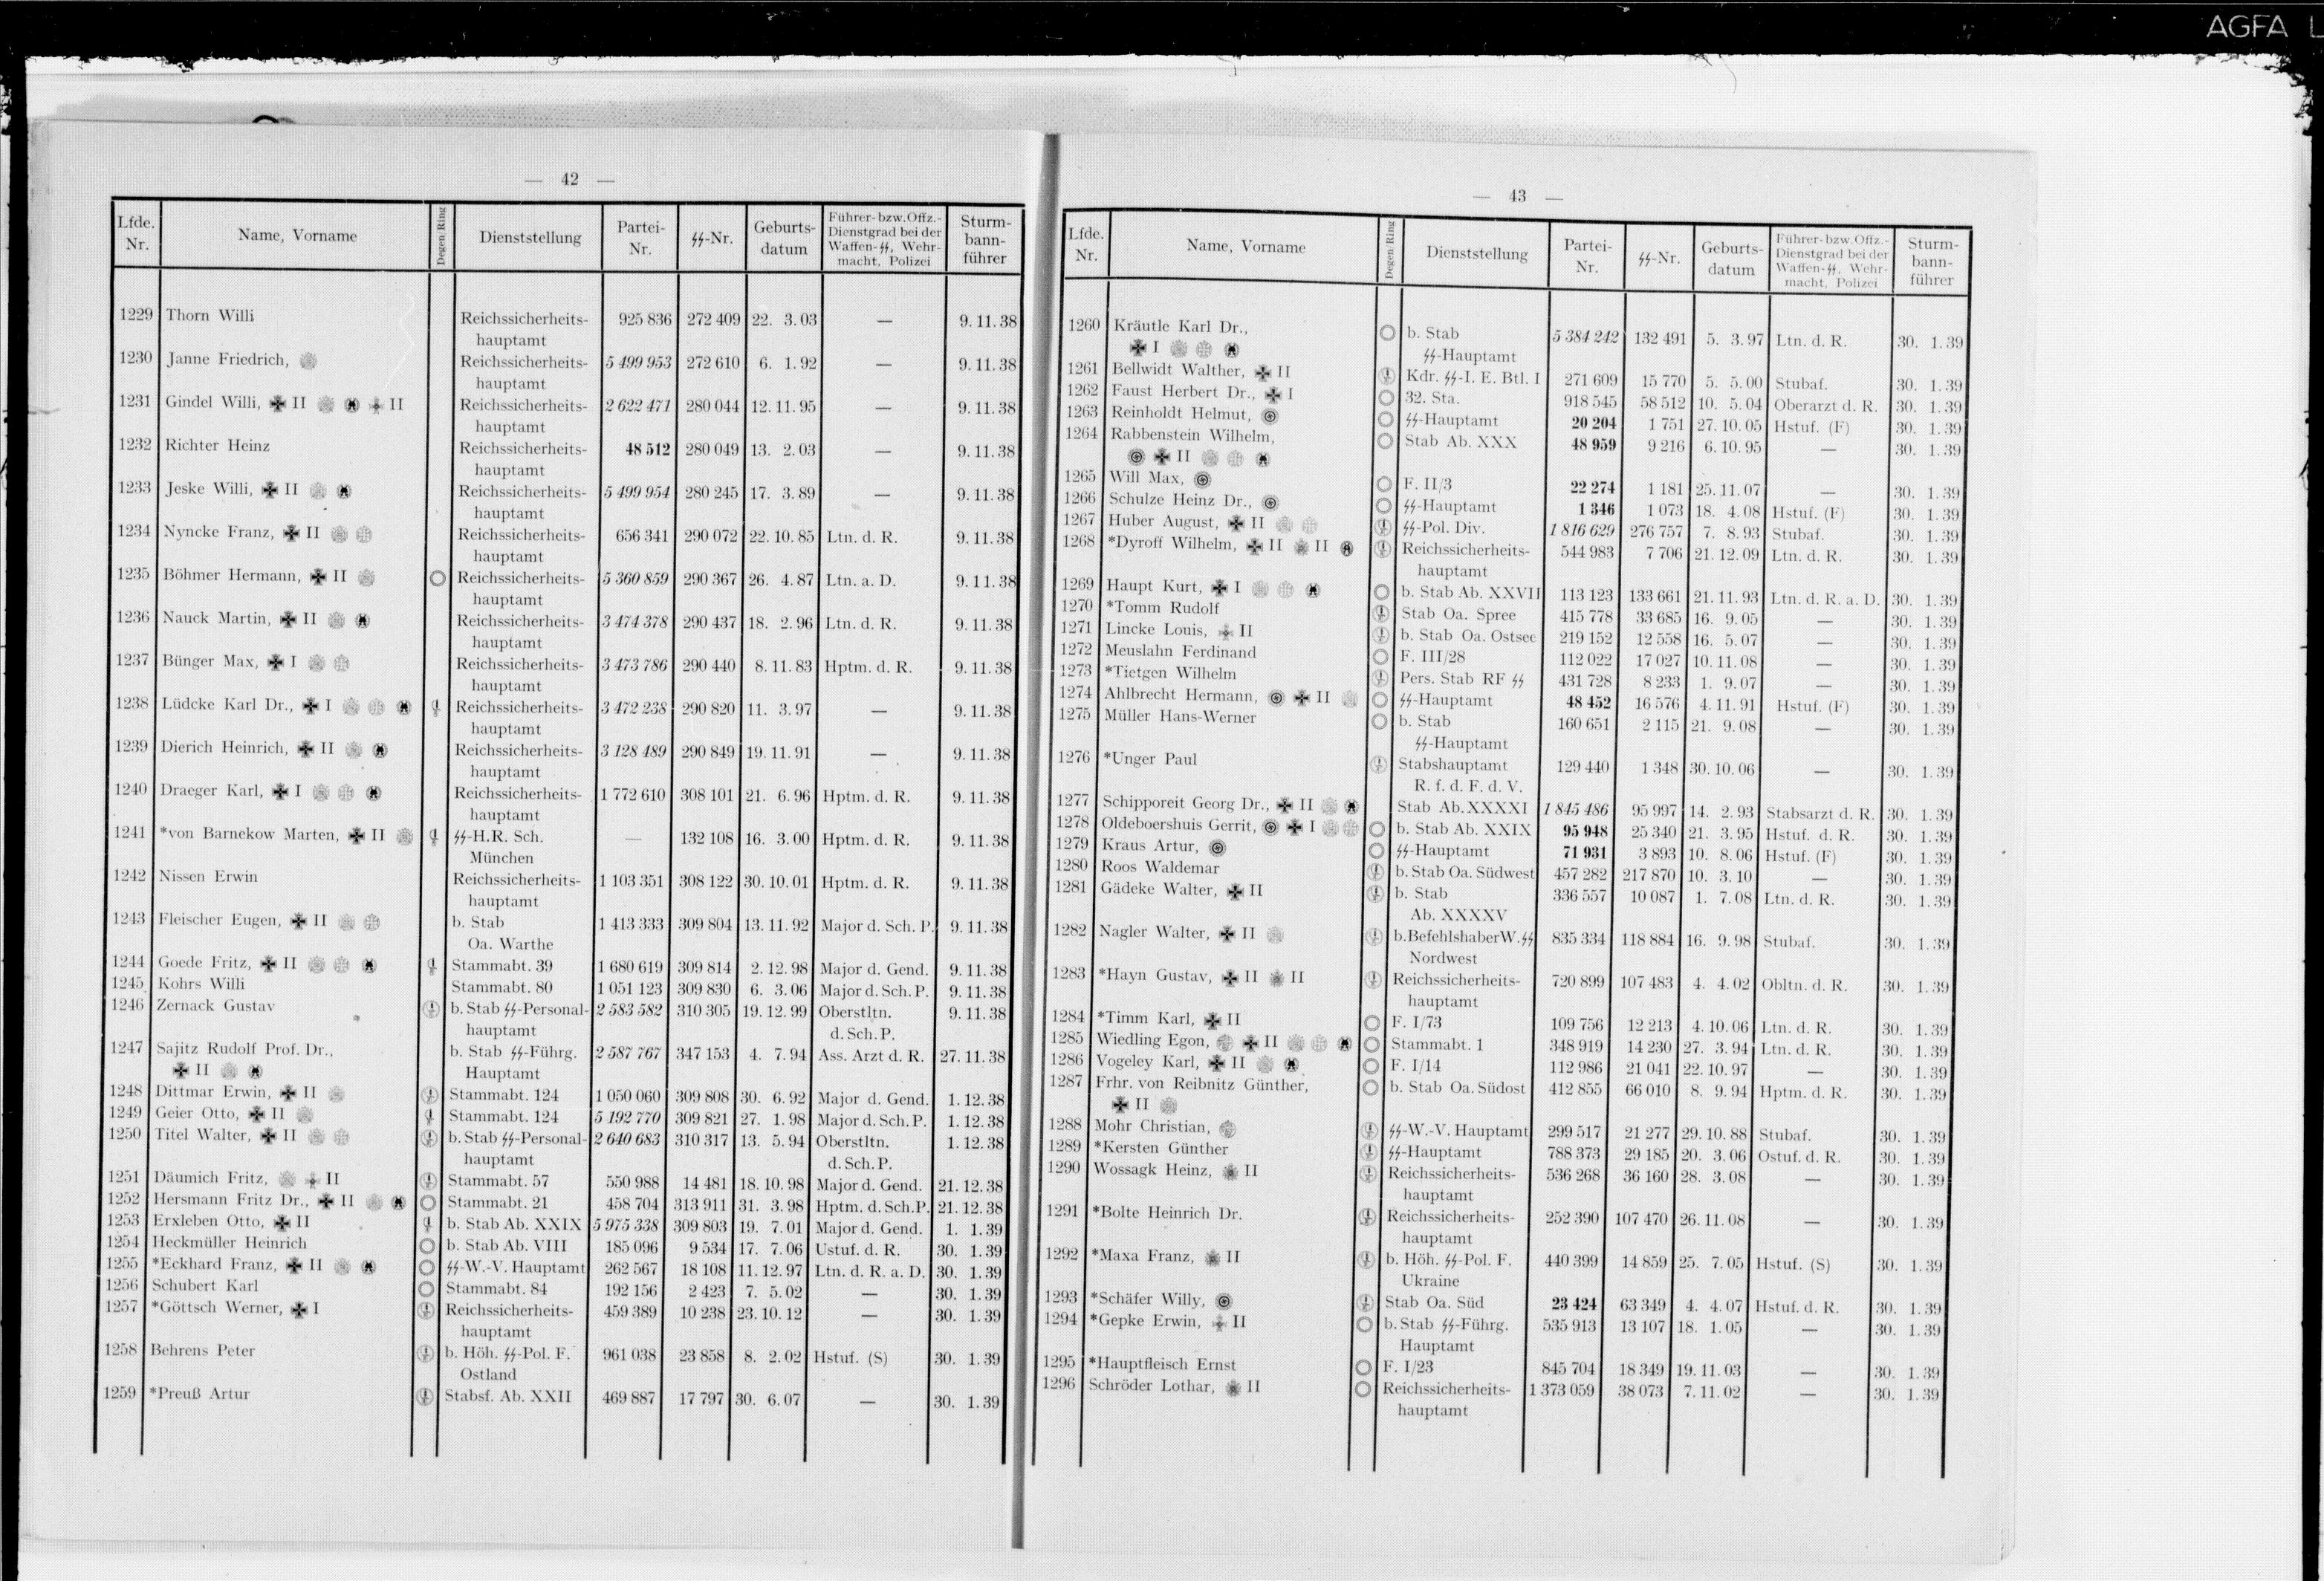 AGFA L
— 42 —
Lfde. Nr. | Name, Vorname | Degen/Ring | Dienststellung | Partei-Nr. | ᛋᛋ-Nr. | Geburts-datum | Führer- bzw. Offz.-Dienstgrad bei der Waffen-ᛋᛋ, Wehr-macht, Polizei | Sturm-bann-führer
1229 Thorn Willi Reichssicherheits- 925 836 272 409 22. 3. 03 — 9. 11. 38
hauptamt
1230 Janne Friedrich, Reichssicherheits- 5 499 953 272 610 6. 1. 92 — 9. 11. 38
hauptamt
1231 Gindel Willi, II II Reichssicherheits- 2 622 471 280 044 12. 11. 95 — 9. 11. 38
hauptamt
1232 Richter Heinz Reichssicherheits- 48 512 280 049 13. 2. 03 — 9. 11. 38
hauptamt
1233 Jeske Willi, II Reichssicherheits- 5 499 954 280 245 17. 3. 89 — 9. 11. 38
hauptamt
1234 Nyncke Franz, II Reichssicherheits- 656 341 290 072 22. 10. 85 Ltn. d. R. 9. 11. 38
hauptamt
1235 Böhmer Hermann, II Reichssicherheits- 5 360 859 290 367 26. 4. 87 Ltn. a. D. 9. 11. 38
hauptamt
1236 Nauck Martin, II Reichssicherheits- 3 474 378 290 437 18. 2. 96 Ltn. d. R. 9. 11. 38
hauptamt
1237 Bünger Max, I Reichssicherheits- 3 473 786 290 440 8. 11. 83 Hptm. d. R. 9. 11. 38
hauptamt
1238 Lüdcke Karl Dr., I Reichssicherheits- 3 472 238 290 820 11. 3. 97 — 9. 11. 38
hauptamt
1239 Dierich Heinrich, II Reichssicherheits- 3 128 489 290 849 19. 11. 91 — 9. 11. 38
hauptamt
1240 Draeger Karl, I Reichssicherheits- 1 772 610 308 101 21. 6. 96 Hptm. d. R. 9. 11. 38
hauptamt
1241 *von Barnekow Marten, II ᛋᛋ-H.R. Sch. — 132 108 16. 3. 00 Hptm. d. R. 9. 11. 38
München
1242 Nissen Erwin Reichssicherheits- 1 103 351 308 122 30. 10. 01 Hptm. d. R. 9. 11. 38
hauptamt
1243 Fleischer Eugen, II b. Stab 1 413 333 309 804 13. 11. 92 Major d. Sch. P. 9. 11. 38
Oa. Warthe
1244 Goede Fritz, II Stammabt. 39 1 680 619 309 814 2. 12. 98 Major d. Gend. 9. 11. 38
1245 Kohrs Willi Stammabt. 80 1 051 123 309 830 6. 3. 06 Major d. Sch. P. 9. 11. 38
1246 Zernack Gustav b. Stab ᛋᛋ-Personal- 2 583 582 310 305 19. 12. 99 Oberstltn. 9. 11. 38
hauptamt d. Sch. P.
1247 Sajitz Rudolf Prof. Dr., b. Stab ᛋᛋ-Führg. 2 587 767 347 153 4. 7. 94 Ass. Arzt d. R. 27. 11. 38
II Hauptamt
1248 Dittmar Erwin, II Stammabt. 124 1 050 060 309 808 30. 6. 92 Major d. Gend. 1. 12. 38
1249 Geier Otto, II Stammabt. 124 5 192 770 309 821 27. 1. 98 Major d. Sch. P. 1. 12. 38
1250 Titel Walter, II b. Stab ᛋᛋ-Personal- 2 640 683 310 317 13. 5. 94 Oberstltn. 1. 12. 38
hauptamt d. Sch. P.
1251 Däumich Fritz, II Stammabt. 57 550 988 14 481 18. 10. 98 Major d. Gend. 21. 12. 38
1252 Hersmann Fritz Dr., II Stammabt. 21 458 704 313 911 31. 3. 98 Hptm. d. Sch. P. 21. 12. 38
1253 Erxleben Otto, II b. Stab Ab. XXIX 5 975 338 309 803 19. 7. 01 Major d. Gend. 1. 1. 39
1254 Heckmüller Heinrich b. Stab Ab. VIII 185 096 9 534 17. 7. 06 Ustuf. d. R. 30. 1. 39
1255 *Eckhard Franz, II ᛋᛋ-W.-V. Hauptamt 262 567 18 108 11. 12. 97 Ltn. d. R. a. D. 30. 1. 39
1256 Schubert Karl Stammabt. 84 192 156 2 423 7. 5. 02 — 30. 1. 39
1257 *Göttsch Werner, I Reichssicherheits- 459 389 10 238 23. 10. 12 — 30. 1. 39
hauptamt
1258 Behrens Peter b. Höh. ᛋᛋ-Pol. F. 961 038 23 858 8. 2. 02 Hstuf. (S) 30. 1. 39
Ostland
1259 *Preuß Artur Stabsf. Ab. XXII 469 887 17 797 30. 6. 07 — 30. 1. 39
— 43 —
Lfde. Nr. | Name, Vorname | Degen/Ring | Dienststellung | Partei-Nr. | ᛋᛋ-Nr. | Geburts-datum | Führer- bzw. Offz.-Dienstgrad bei der Waffen-ᛋᛋ, Wehr-macht, Polizei | Sturm-bann-führer
1260 Kräutle Karl Dr., b. Stab 5 384 242 132 491 5. 3. 97 Ltn. d. R. 30. 1. 39
I ᛋᛋ-Hauptamt
1261 Bellwidt Walther, II Kdr. ᛋᛋ-I. E. Btl. I 271 609 15 770 5. 5. 00 Stubaf. 30. 1. 39
1262 Faust Herbert Dr., I 32. Sta. 918 545 58 512 10. 5. 04 Oberarzt d. R. 30. 1. 39
1263 Reinholdt Helmut, ᛋᛋ-Hauptamt 20 204 1 751 27. 10. 05 Hstuf. (F) 30. 1. 39
1264 Rabbenstein Wilhelm, Stab Ab. XXX 48 959 9 216 6. 10. 95 — 30. 1. 39
II
1265 Will Max, F. II/3 22 274 1 181 25. 11. 07 — 30. 1. 39
1266 Schulze Heinz Dr., ᛋᛋ-Hauptamt 1 346 1 073 18. 4. 08 Hstuf. (F) 30. 1. 39
1267 Huber August, II ᛋᛋ-Pol. Div. 1 816 629 276 757 7. 8. 93 Stubaf. 30. 1. 39
1268 *Dyroff Wilhelm, II II Reichssicherheits- 544 983 7 706 21. 12. 09 Ltn. d. R. 30. 1. 39
hauptamt
1269 Haupt Kurt, I b. Stab Ab. XXVII 113 123 133 661 21. 11. 93 Ltn. d. R. a. D. 30. 1. 39
1270 *Tomm Rudolf Stab Oa. Spree 415 778 33 685 16. 9. 05 — 30. 1. 39
1271 Lincke Louis, II b. Stab Oa. Ostsee 219 152 12 558 16. 5. 07 — 30. 1. 39
1272 Meuslahn Ferdinand F. III/28 112 022 17 027 10. 11. 08 — 30. 1. 39
1273 *Tietgen Wilhelm Pers. Stab RF ᛋᛋ 431 728 8 233 1. 9. 07 — 30. 1. 39
1274 Ahlbrecht Hermann, II ᛋᛋ-Hauptamt 48 452 16 576 4. 11. 91 Hstuf. (F) 30. 1. 39
1275 Müller Hans-Werner b. Stab 160 651 2 115 21. 9. 08 — 30. 1. 39
ᛋᛋ-Hauptamt
1276 *Unger Paul Stabshauptamt 129 440 1 348 30. 10. 06 — 30. 1. 39
R. f. d. F. d. V.
1277 Schipporeit Georg Dr., II Stab Ab. XXXXI 1 845 486 95 997 14. 2. 93 Stabsarzt d. R. 30. 1. 39
1278 Oldeboershuis Gerrit, I b. Stab Ab. XXIX 95 948 25 340 21. 3. 95 Hstuf. d. R. 30. 1. 39
1279 Kraus Artur, ᛋᛋ-Hauptamt 71 931 3 893 10. 8. 06 Hstuf. (F) 30. 1. 39
1280 Roos Waldemar b. Stab Oa. Südwest 457 282 217 870 10. 3. 10 — 30. 1. 39
1281 Gädeke Walter, II b. Stab 336 557 10 087 1. 7. 08 Ltn. d. R. 30. 1. 39
Ab. XXXXV
1282 Nagler Walter, II b. Befehlshaber W. ᛋᛋ 835 334 118 884 16. 9. 98 Stubaf. 30. 1. 39
Nordwest
1283 *Hayn Gustav, II II Reichssicherheits- 720 899 107 483 4. 4. 02 Obltn. d. R. 30. 1. 39
hauptamt
1284 *Timm Karl, II F. I/73 109 756 12 213 4. 10. 06 Ltn. d. R. 30. 1. 39
1285 Wiedling Egon, II Stammabt. 1 348 919 14 230 27. 3. 94 Ltn. d. R. 30. 1. 39
1286 Vogeley Karl, II F. I/14 112 986 21 041 22. 10. 97 — 30. 1. 39
1287 Frhr. von Reibnitz Günther, b. Stab Oa. Südost 412 855 66 010 8. 9. 94 Hptm. d. R. 30. 1. 39
II
1288 Mohr Christian, ᛋᛋ-W.-V. Hauptamt 299 517 21 277 29. 10. 88 Stubaf. 30. 1. 39
1289 *Kersten Günther ᛋᛋ-Hauptamt 788 373 29 185 20. 3. 06 Ostuf. d. R. 30. 1. 39
1290 Wossagk Heinz, II Reichssicherheits- 536 268 36 160 28. 3. 08 — 30. 1. 39
hauptamt
1291 *Bolte Heinrich Dr. Reichssicherheits- 252 390 107 470 26. 11. 08 — 30. 1. 39
hauptamt
1292 *Maxa Franz, II b. Höh. ᛋᛋ-Pol. F. 440 399 14 859 25. 7. 05 Hstuf. (S) 30. 1. 39
Ukraine
1293 *Schäfer Willy, Stab Oa. Süd 23 424 63 349 4. 4. 07 Hstuf. d. R. 30. 1. 39
1294 *Gepke Erwin, II b. Stab ᛋᛋ-Führg. 535 913 13 107 18. 1. 05 — 30. 1. 39
Hauptamt
1295 *Hauptfleisch Ernst F. I/23 845 704 18 349 19. 11. 03 — 30. 1. 39
1296 Schröder Lothar, II Reichssicherheits- 1 373 059 38 073 7. 11. 02 — 30. 1. 39
hauptamt